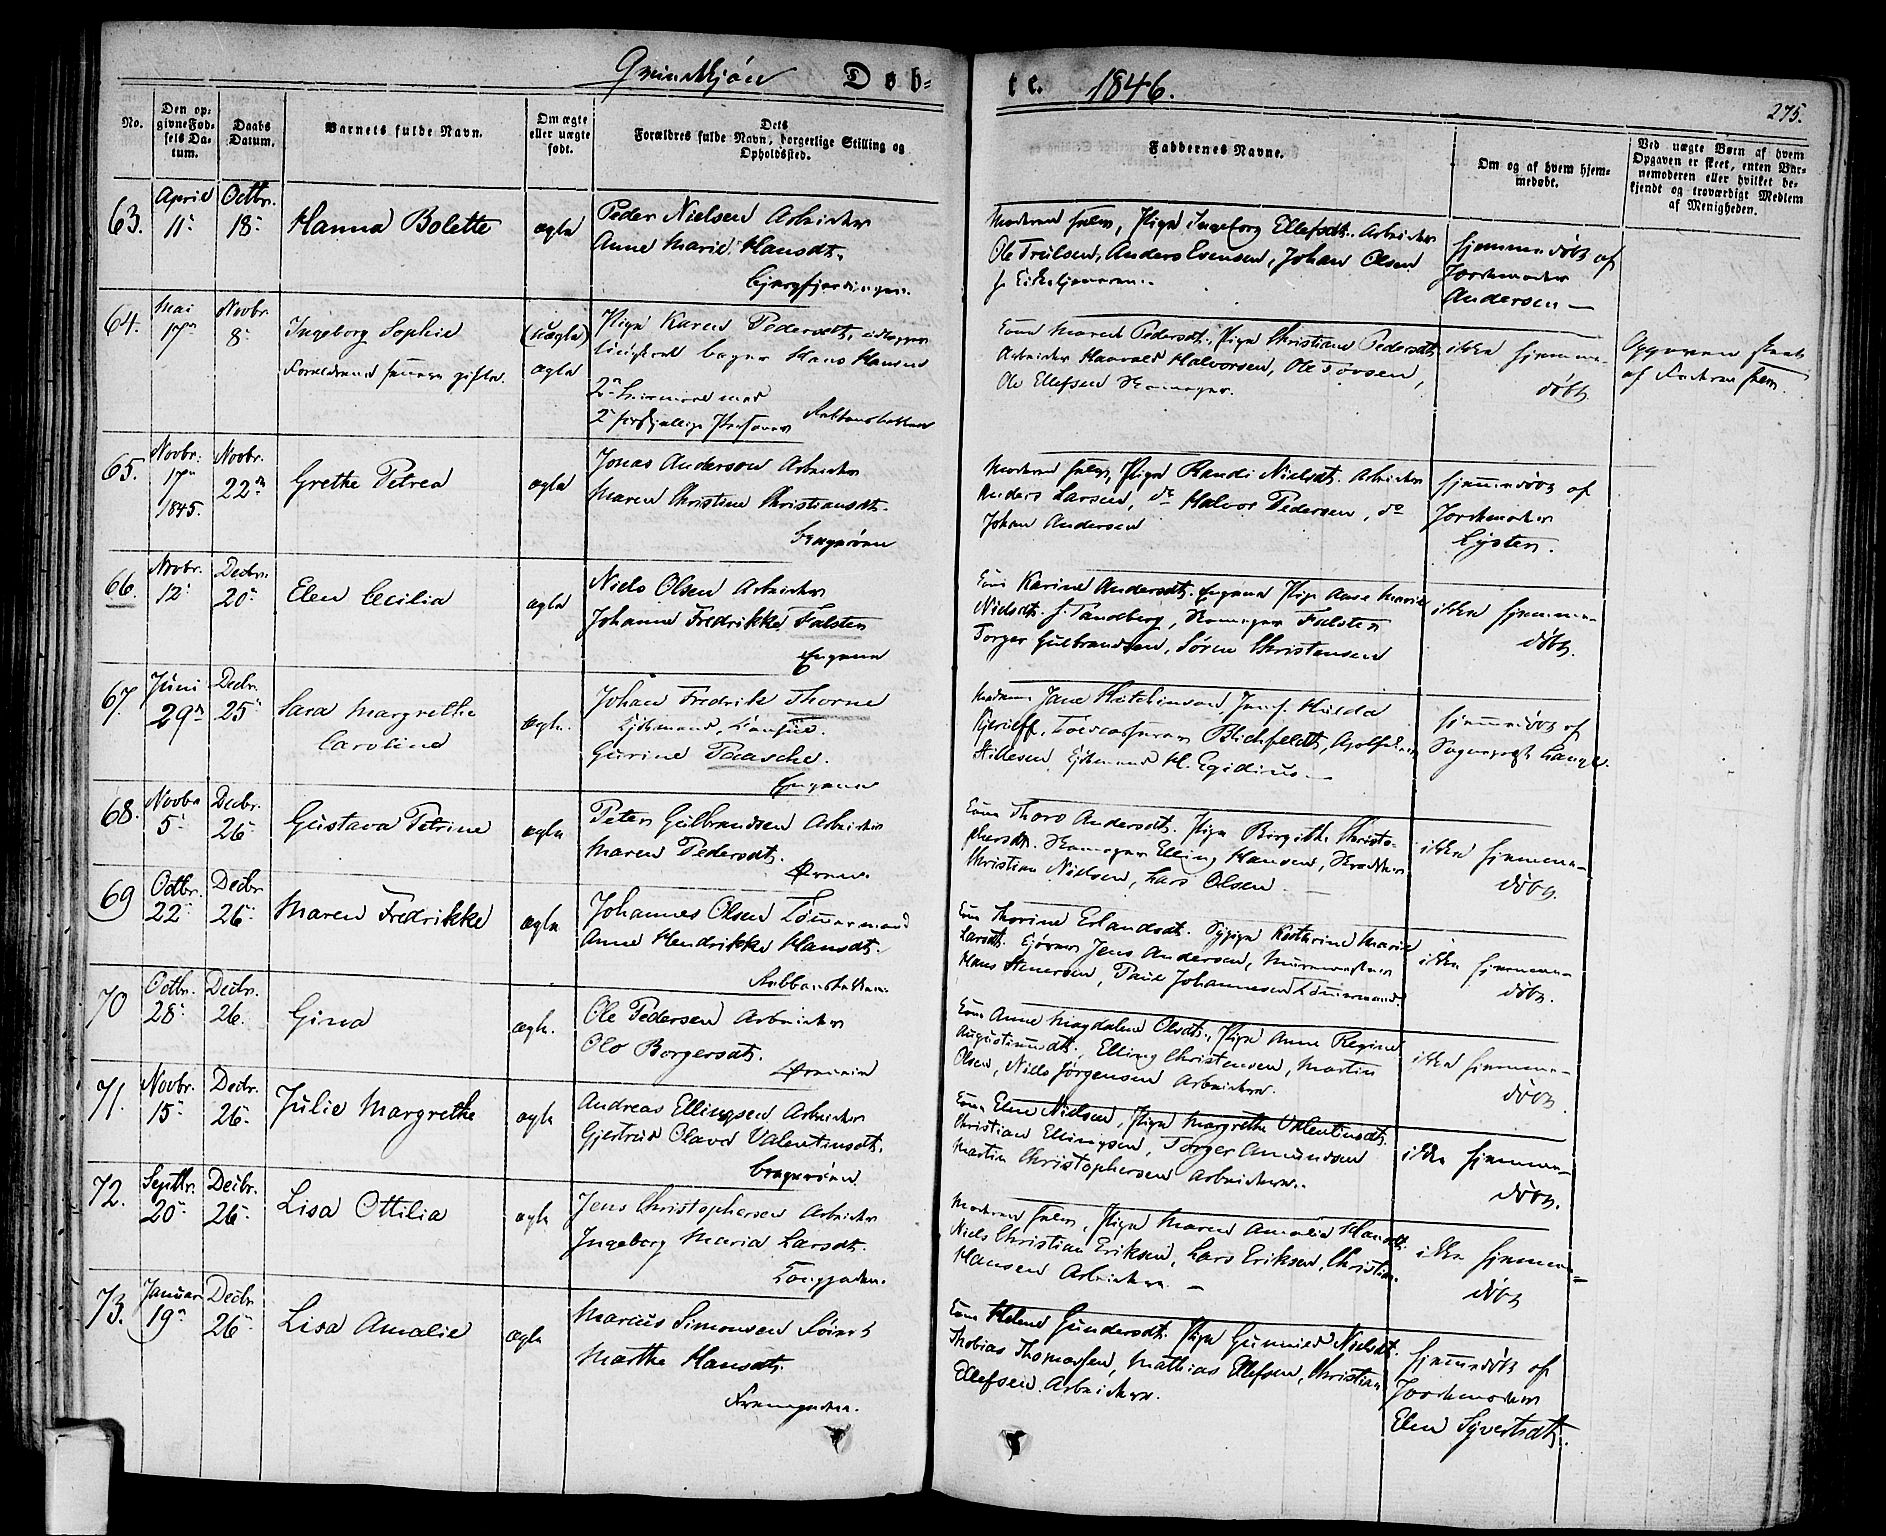 Qvinkjøn
Døb-
te. 1846.
275.
No.
Den op-
givne Fød-
sels Da-
tum.
Daabs
Datum.
Barnets fulde Navn.
Om ægte
eller uægte
født.
Dets
Forældres fulde Navn, borgerlige Stilling og
Opholdssted.
Faddernes Navne.
Om og af hvem hjem-
medøbt.
Ved uægte Børn af hvem
Opgaven er skeet, enten Bar-
nemoderen eller hvilket be-
kjendt og troværdigt Medlem
af Menigheden.
63. April 11 Octbr. 18 Hanna Bolette ægte
Peder Nielsen Arbeider
Anne Marie Hansdt.
Moderen selv, Pige Ingeborg Ellefsdt. Arbeider
Ole Truelsen, Anders Evensen, Johan Olsen
hjemmedøbt af
Jordemoder
Andersen
64. Mai 17 Novbr. 8 Ingeborg Sophie (uægte)
Forældrene senere gifte. ægte
Pige Karen Pedersdt.
Hans Hansen
2 Leiermaal med
2 forskjellige Personer
Kone Maren Pedersdt., Pige Christiane Pedersdt.
Arbeider Haavald Halvorsen, Ole Tovsen,
Ole Ellefsen
ikke hjemme-
døbt
Opgaven skeet
af Faderen selv
65. Novbr. 17 1845. Novbr. 22 Grethe Petrea ægte
Jonas Andersen Arbeider
Maren Christine Christiansdt.
Bragerøen
Moderen selv, Pige Randi Nielsdt. Arbeider
Anders Larsen, do Halvor Pedersen, do
Johan Andersen
hjemmedøbt af
Jordemoder
Lysten.
66. Novbr. 12 Decbr. 20 Elen Cecilia ægte
Niels Olsen Arbeider
Johanne Fredrikke Falsten
Engene
Kone Karine Andersdt. Engene Pige Anne Marie
Nielsdt. f. Tandberg, Falsten
Torger Gulbrandsen, Søren Christensen
ikke hjemme-
døbt.
67. Juni 29 Decbr. 25 Sara Margrethe
Caroline ægte.
Johan Fredrik Thorne
Kjøbmand, Consul.
Gurine Paasche.
Engene
Madam Jane Hutchinson, Jomf. Hulda
Kjerulff, Blichfeldt,
Kjøbmand H. Egidius.
hjemmedøbt af
Sogneprest Lange.
68. Novbr 5 Decbr. 26 Gustava Petrine ægte
Peter Gulbrandsen Arbeider
Maren Pedersdt.
Øren.
Kone Thora Andersdt. Pige Birgithe Christo-
phersdt. Elling Hansen,
Christian Nielsen, Lars Olsen
ikke hjemme-
døbt.
69 Octbr. 22 Decbr 26 Maren Fredrikke ægte
Johannes Olsen Tømmermand
Anne Hendrikke Hansdt.
Kone Thorine Erlandsdt. Pige Kathrine Marie
Larsdt. Jens Andersen, Muurmester
Hans Stenersen, Paul Johannesen Tømmermænd.
ikke hjemme-
døbt.
70 Octbr. 28 Decbr. 26. Gina ægte.
Ole Pedersen Arbeider
Olo Borgersdt.
Kone Anne Magdalene Olsdt., Pige Anne Regine
Augustinusdt., Elling Christensen, Martin
Olsen, Niels Jørgensen Arbeidere.
ikke hjemme-
døbt.
71. Novbr. 15 Decbr. 26. Julie Margrethe ægte
Andreas Ellingsen Arbeider
Gjertrud Olava Valentinsdt.
Bragerøen
Kone Elen Nielsen, Pige Margrethe Valentinsdt.
Christian Ellingsen, Torger Amundsen
Martin Christophersen Arbeidere.
ikke hjemme-
døbt.
72. Septbr. 20 Decbr. 26 Lisa Ottilia ægte
Jens Christophersen Arbeider
Ingeborg Maria Larsdt.
Langgaden.
Moderen selv, Pige Maren Amalia Hansdt.
Niels Christian Eriksen, Lars Eriksen, Christian
Hansen Arbeidere
ikke hjemme-
døbt
73. Januar 19 Decbr 26 Lisa Amalie ægte
Marcus Simonsen
Marthe Hansdt.
Kone Helene Gundersdt. Pige Gunnild Nielsdt.
Thobias Thomassen, Mathias Ellefsen, Christian
Ellefsen Arbeidere.
hjemmedøbt af
Jordemoder
Elen Syvertsdt.